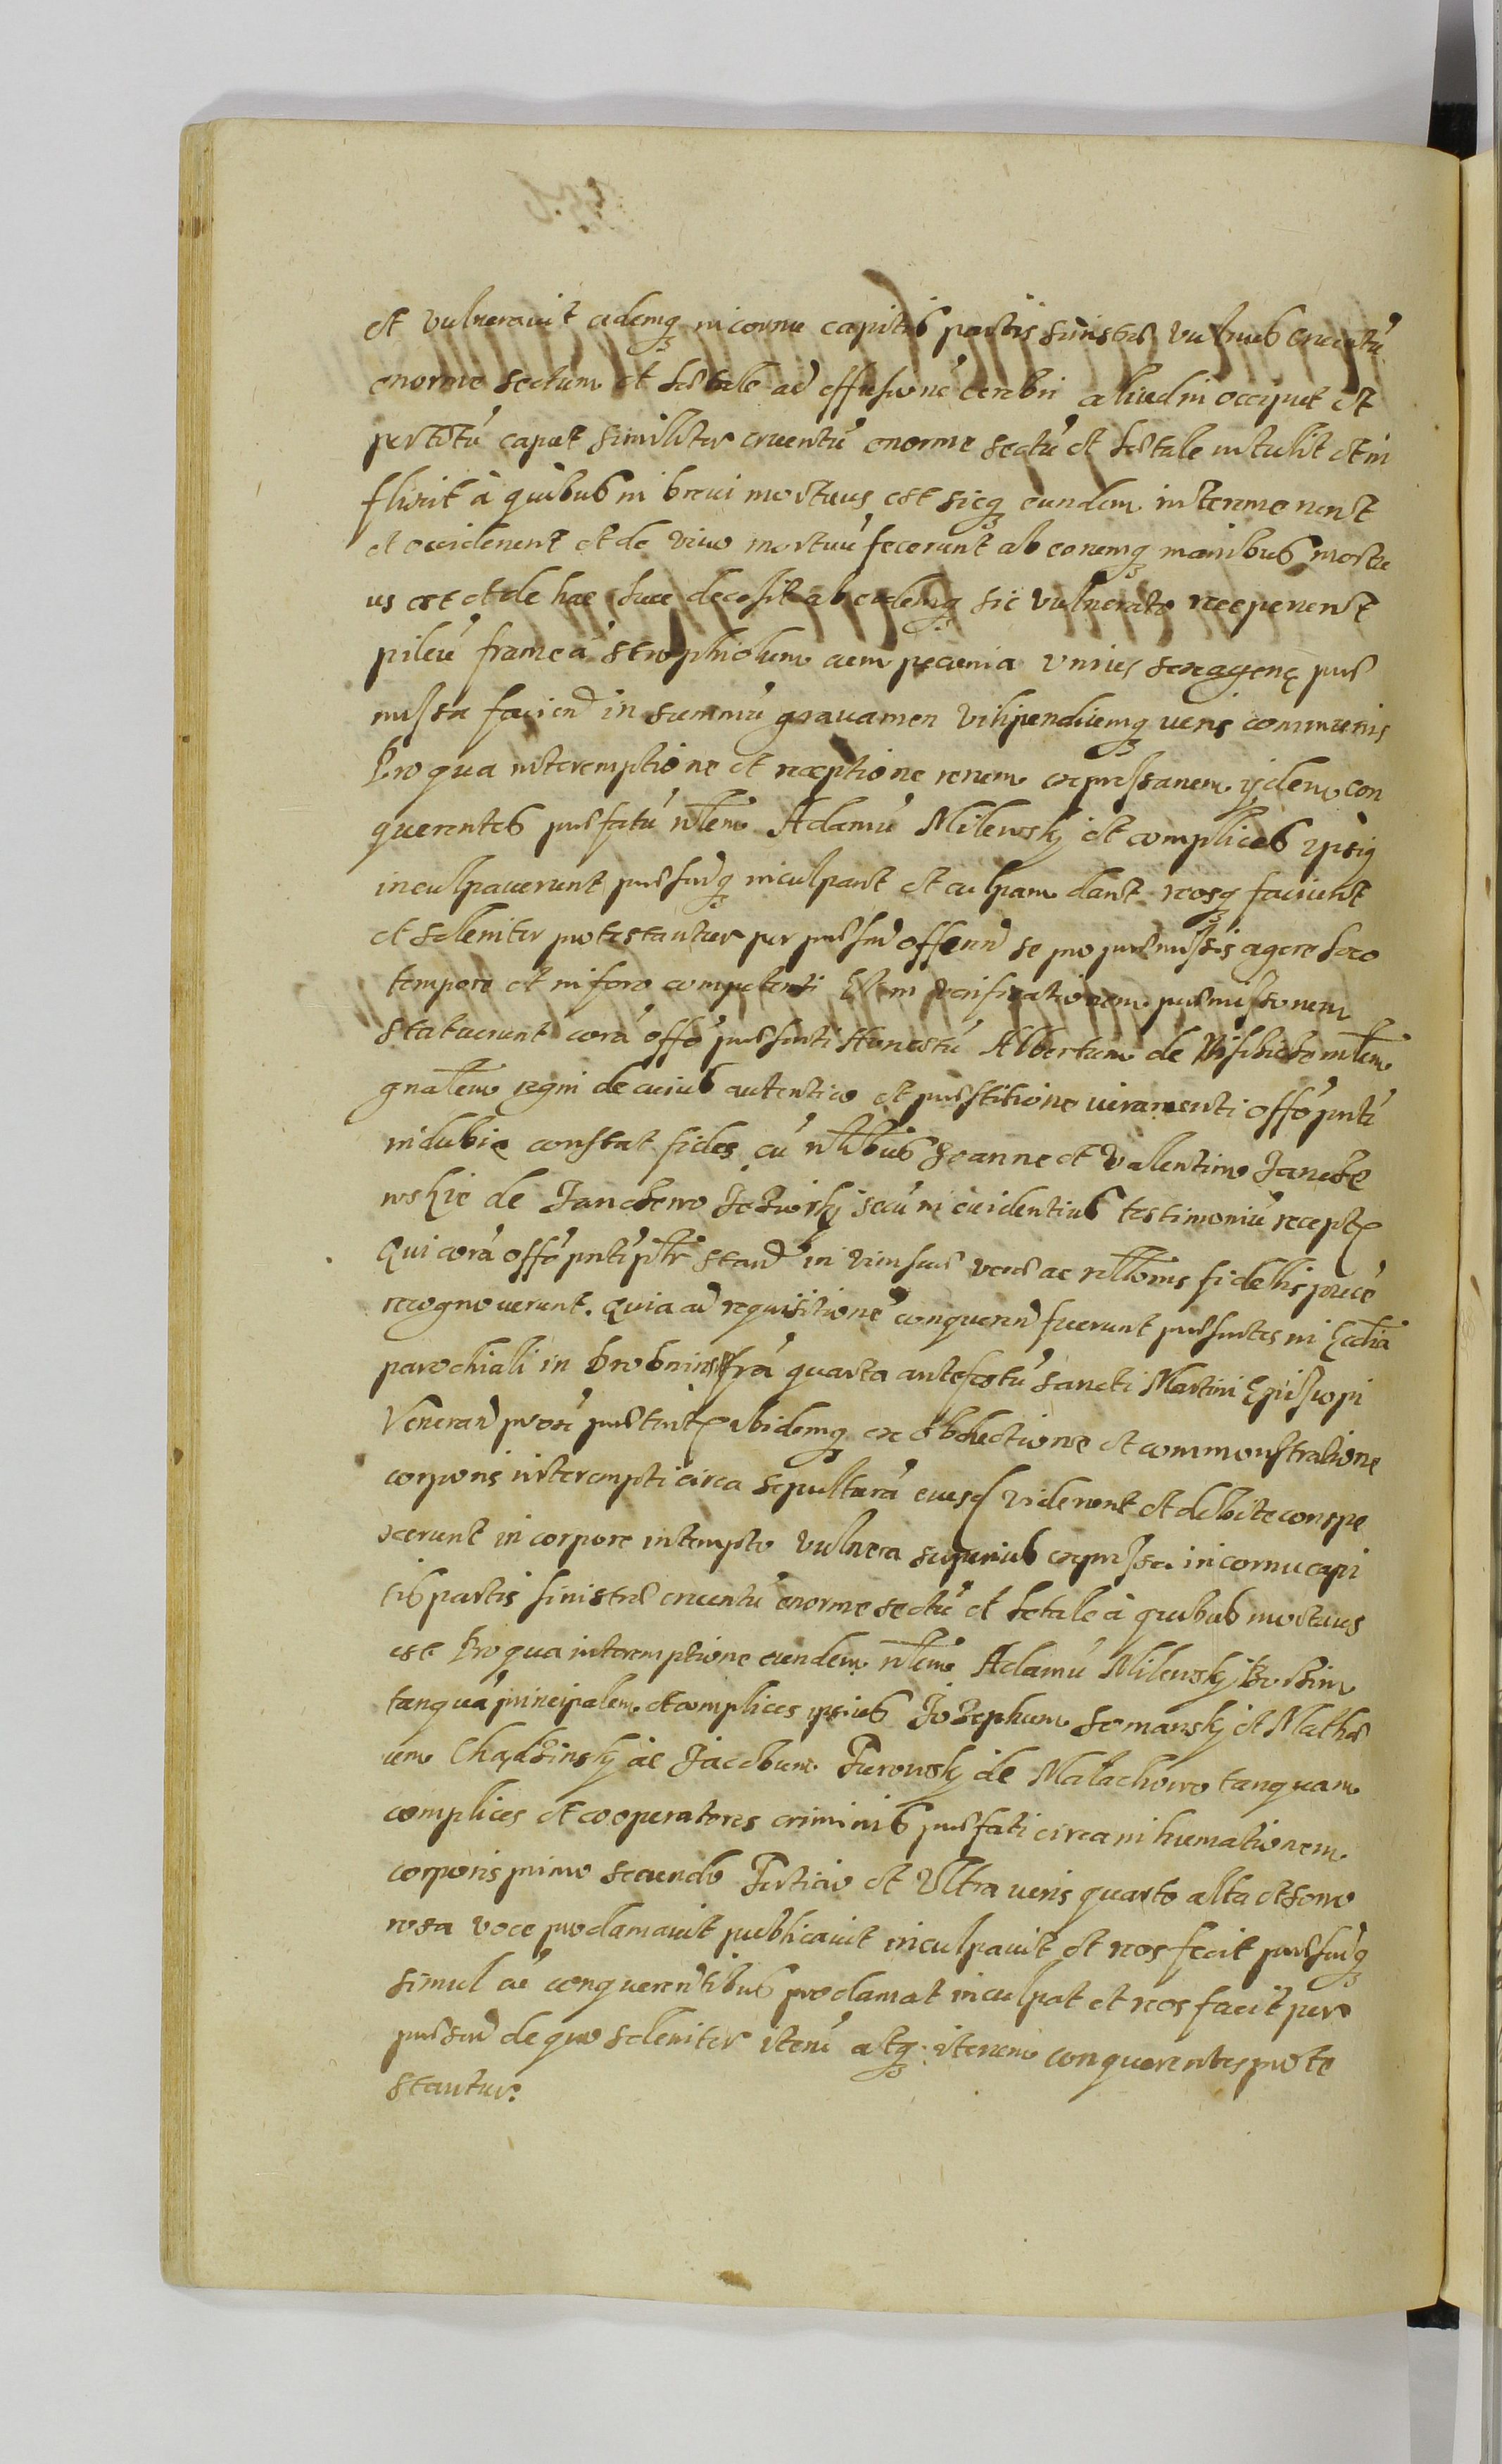 et vulneravit eidemq in cornu capitis partis sinistrę vulnus cruentū
enorme sectum et letale ad effusionē cerebri aliud in occiput et
per totū caput similiter cruentū enorme sectū et letale intulit et in
flixit à quibus in brevi mortuus est sicq eundem interemerunt
et occiderunt et de vivo mortuū fecerunt ab eorumq manibus mortu
us est et de hac luce decessit ab eodemq sic vulnerato receperunt
pileū frameā strophiolum cum pecunia unius sexagenę prę
missa faciend in summū gravamen vilipendiumq iuris communis
Pro qua interemptione et receptione rerum expressarum ijdem con
querentes pręfatū nlem Adamū Milewskj et complices ipsiq
inculpaverunt pręsnq inculpant et culpam dant reosq faciunt
et soleniter protestantur per pręsnd offerrn se pro pręmissis agere loco
tempore et in foro competenti Et in verificationem pręmissorum
statuerunt corā offō pręsenti Honestū Albertum de mlem
gnalem regni de cuius autentico et pręstitione iuramenti offō pnti
indubia constat fides cū nlibus Joanne et Valentino Jancze
wskie de Janczewo secū in evidentius testimoniū recept
Qui corā offō pnti pltr stand in vim suę verę ac rllonis fidelis
recognoverunt. Quia ad requisitionē conqueren fuerunt pręsentes in Ecclia
parochiali in Drobnin frā quarta ante festū Sancti Martini Episcopi
Veneran proxē pręterit ibidemq ex obductione et commonstratione
corporis interempti circa sepulturā eiusd viderunt et debite conspe
xerunt in corpore intempto vulnera superius expressa in cornu capi
tis partis sinistrę cruentū enorme sectū et letale à quibus mortuus
est Pro qua interemptione eundem nlem Adamū Milewskj
tanquā principalem et complices ipsius Jozephum Somanskj et Mathę
um Chądzinskj ac Jacobum Turowskj de Malachowo tanquam
complices et cooperatores criminis pręfati circa inhumationem
corporis primo secundo Tertio et Ultra iuris quarto alta et sono
rosa voce proclamavit publicavit inculpavit et reos fecit pręsnq
simul cū conquerentibus proclamat inculpat et reos facit per
pręsnd de quo soleniter iterū atq iterum conquerentes prote
stantur.